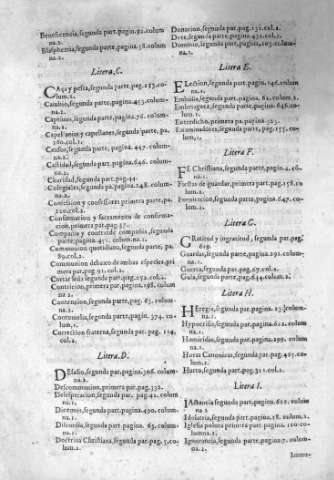 Beneficencia, segunda part. pagin. 92. colum
na. 1.
Blasphemia, segunda parte, pagin. 38. colum
na. 1.
Litera, C.
CAça y pesca, segunda par. pag. 153. co-
lum. 1.
Cambio, segunda parte, pagina. 453. colum-
na. 1.
Captiuos, segunda parte, pagina. 76. colum-
na. 1.
Capellanias y capellanes, segunda parte, pa
160. col. 1.
Censos, segunda parte, pagina. 447. colum-
na. 1.
Castidad, segunda part. pagina. 646. colum-
na. 1.
Claridad, segunda part. pag. 44.
Colegiales, segunda pa. pagina. 148. colum-
na. 1.
Confession y confessores primera parte, pa
Confirmacion y sacramento de confirma-
cion, primera par. pag. 57.
Compañia y contrato de compañia, segunda
parte, pagina. 455. colum. 1.
Communion quotidiana, segunda parte, pa
89. col. 1.
Communion debaxo de ambas especies, pri
mera par. pag. 91. col. 1.
segunda par. pag. 152. col. 1.
Contricion, primera par. pagina. 198. colum
na. 1.
Contencion, segunda par. pag. 63. colum-
na. 1.
Contumelia, segunda parte, pagin. 374. co-
lum. 1.
Correction fraterna, segunda par. pag. 124.
col. 1.
Litera. D.
DEsafio, segunda par. pagin. 306. colum-
na. 1.
Descomunion, primera par. pag. 332.
Desesperacion, segunda par. pag. 41. colum-
na. 1.
Diezmos, segunda parte, pagina. 490. colum-
na. 1.
Discordia, segunda par. pagina. 65. colum-
na. 1.
Doctrina Christiana, segunda par. pag. 5. co-
lum.
Donacion, segunda par. pag. 131. col. 1.
Dote, segunda parte, pagina 432. col. 1.
Dominio, segunda part. pagina. 103. colum-
na. 1.
Litera E.
ELeccion, segunda part. pagin. 146. colum
na. 1.
Embidia, segunda part. pagina. 61. colum. 1.
Embriaguez, segunda parte, pagina. 648. co-
lum. 1.
Entredicho, primera pa. pagina. 325.
Excomulgados, segunda part. pag. 155. co-
lum. 1.
Litera F.
FE Christiana, segunda parte, pagin. 4. co-
lu. 1.
Fiestas de guardar, primera part. pag. 158. co
lum. 1.
Fornicacion, segunda parte, pagina. 647. co-
lum. 1.
Litera G.
GRatitud y ingratitud, segunda par. pag.
619.
Guardas, segunda parte, pagina. 292. colum-
na. 1.
Guerra, segunda pa. pag. 67. col. 1.
Gula, segunda parte, pag. 634. colum. 1.
Litera H.
HEregia, segunda par. pagina. 25. colum-
na. 1.
Hypocresia, segunda par. pagina. 622. colum
na. 1.
Homicidio, segunda par. pagina. 299. colum-
na. 1.
Horas Canonicas, segunda par. pag. 465. co-
lum. 1.
Hurto, segunda part. pag. 311. col. 1.
Litera I.
IActancia segunda part. pagina, 622. colum
na 1.
Idolatria, segunda part. pagina. 18. colum. 1.
Iglesia polluta primera part. pagina 120 co-
lumna. 1.
Ignorancia, segunda parte, pagina. 7. colum-
na. 1.